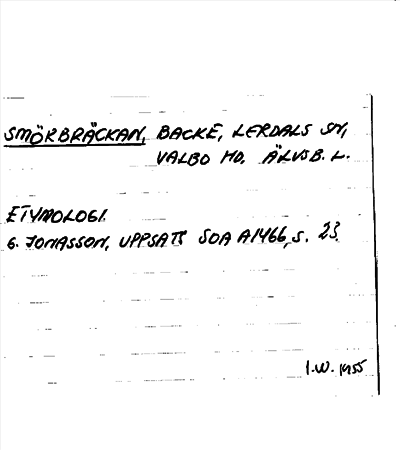 SMÖRBRÄCKAN, BACKE, LERDALS SN,
VALBO HD. ÄLVSB. L.
ETYMOLOGI.
G. JONASSON, UPPSATS SOA A1466, S. 23.
I.W. 1955